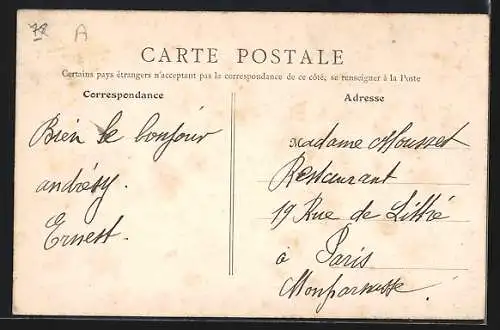 78 A
CARTE POSTALE
Certains pays étrangers n'acceptant pas la correspondance de ce côté, se renseigner à la Poste
Correspondance
Bien le bonjour
andrésy.
Ernest.
Adresse
Madame Mousset
Restaurant
19 Rue de Littré
à Paris
Monparnasse.